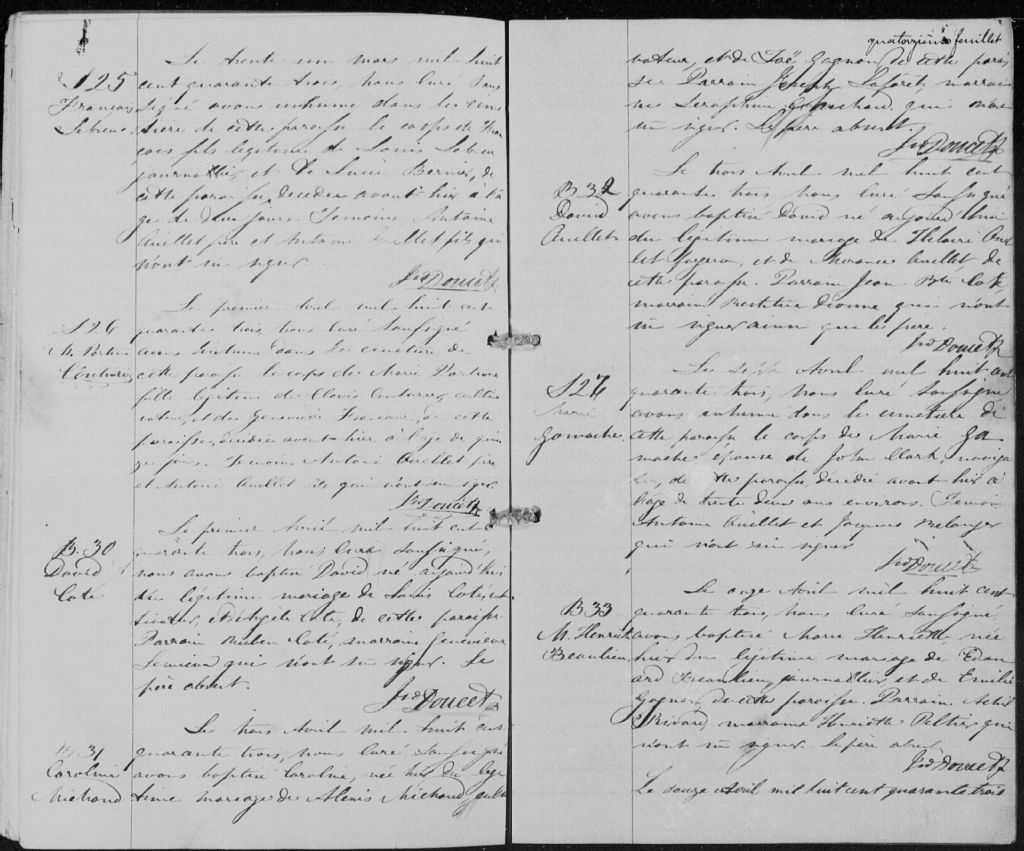 S 25
François
Lebrun
Le trente un mars mil huit
cent quarante trois, nous curé sous
signé avons inhumé dans le cime
tière de cette paroisse le corps de Fran
çois fils légitime de Louis Lebrun
journalier et de Lucie Bernier, de
cette paroisse, décédée avant hier à l'â
ge de deux jours. Temoins Antoine
Ouellet père et Antoine fils qui
n'ont su signer.
Jos Doucet Ptr
S 26
M.
Couture
Le premier avril mil huit cent
quarante trois, nous curé soussigné
avons inhumé dans le cimetière de
cette paroisse le corps de Marie
fille légitime de Clovis Couture, culti
vateur, et de Genevieve de cette
paroisse, décédée avant hier à l'age de quin
ze jours. Temoins Antoine Ouellet père
et Antoine Ouellet fils qui n'ont su signer.
Jos Doucet Ptr
B. 30
David
Coté
Le premier Avril mil huit cent
quarante trois, nous curé soussigné,
nous avons baptisé David, né aujourd'hui
du légitime mariage de Louis Coté,
et de Coté, de cette paroisse
Parrain Ruben Coté, marraine Genevieve
Lemieux qui n'ont su signer. Le
père absent.
Jos Doucet Ptr
B. 31
Caroline
Michaud
Le trois Avril mil huit cent
quarante trois, nous curé soussigné
avons baptisé Caroline, née hier du légi
time mariage de Alexis Michaud, culti
quatorzième feuillet
vateur, et de Zoë Gagnon de cette parois
se Parrain Joseph marrai
ne Seraphine qui n'ont
su signer. Le père absent.
Jos Doucet Ptr
B 32
David
Ouellet
Le trois Avril mil huit cent
quarante trois, nous curé soussigné
avons baptisé David né aujourd'hui
du légitime mariage de Helaire Ouel
let forgeron, et de Ouellet de
cette paroisse. Parrain Jean Bte Coté
marraine Restitue Dionne qui n'ont
su signer ainsi que le père.
Jos Doucet Ptr
S 27
Marie
Gamache
Le sept Avril mil huit cent
quarante trois, nous curé soussigné
avons inhumé dans le cimetière de
cette paroisse le corps de Marie Ga
mache épouse de John Clark, naviga
teur, de cette paroisse, décédée avant hier à
l'age de trente deux ans environ. Temoins
Antoine Ouellet et Jacques Belanger
qui n'ont su signer
Jos Doucet Ptr
B 33
M. Henriette
Beaulieu
Le onze Avril mil huit cent
quarante trois, nous curé soussigné,
avons baptisé Marie Henriette née
hier du légitime mariage de Edou
ard Beaulieu, journalier, et de Emilie
Gagnon, de cette paroisse. Parrain
marraine Henriette Peltier qui
n'ont su signer. le père absent
Jos Doucet Ptr
Le douze Avril mil huit cent quarante trois